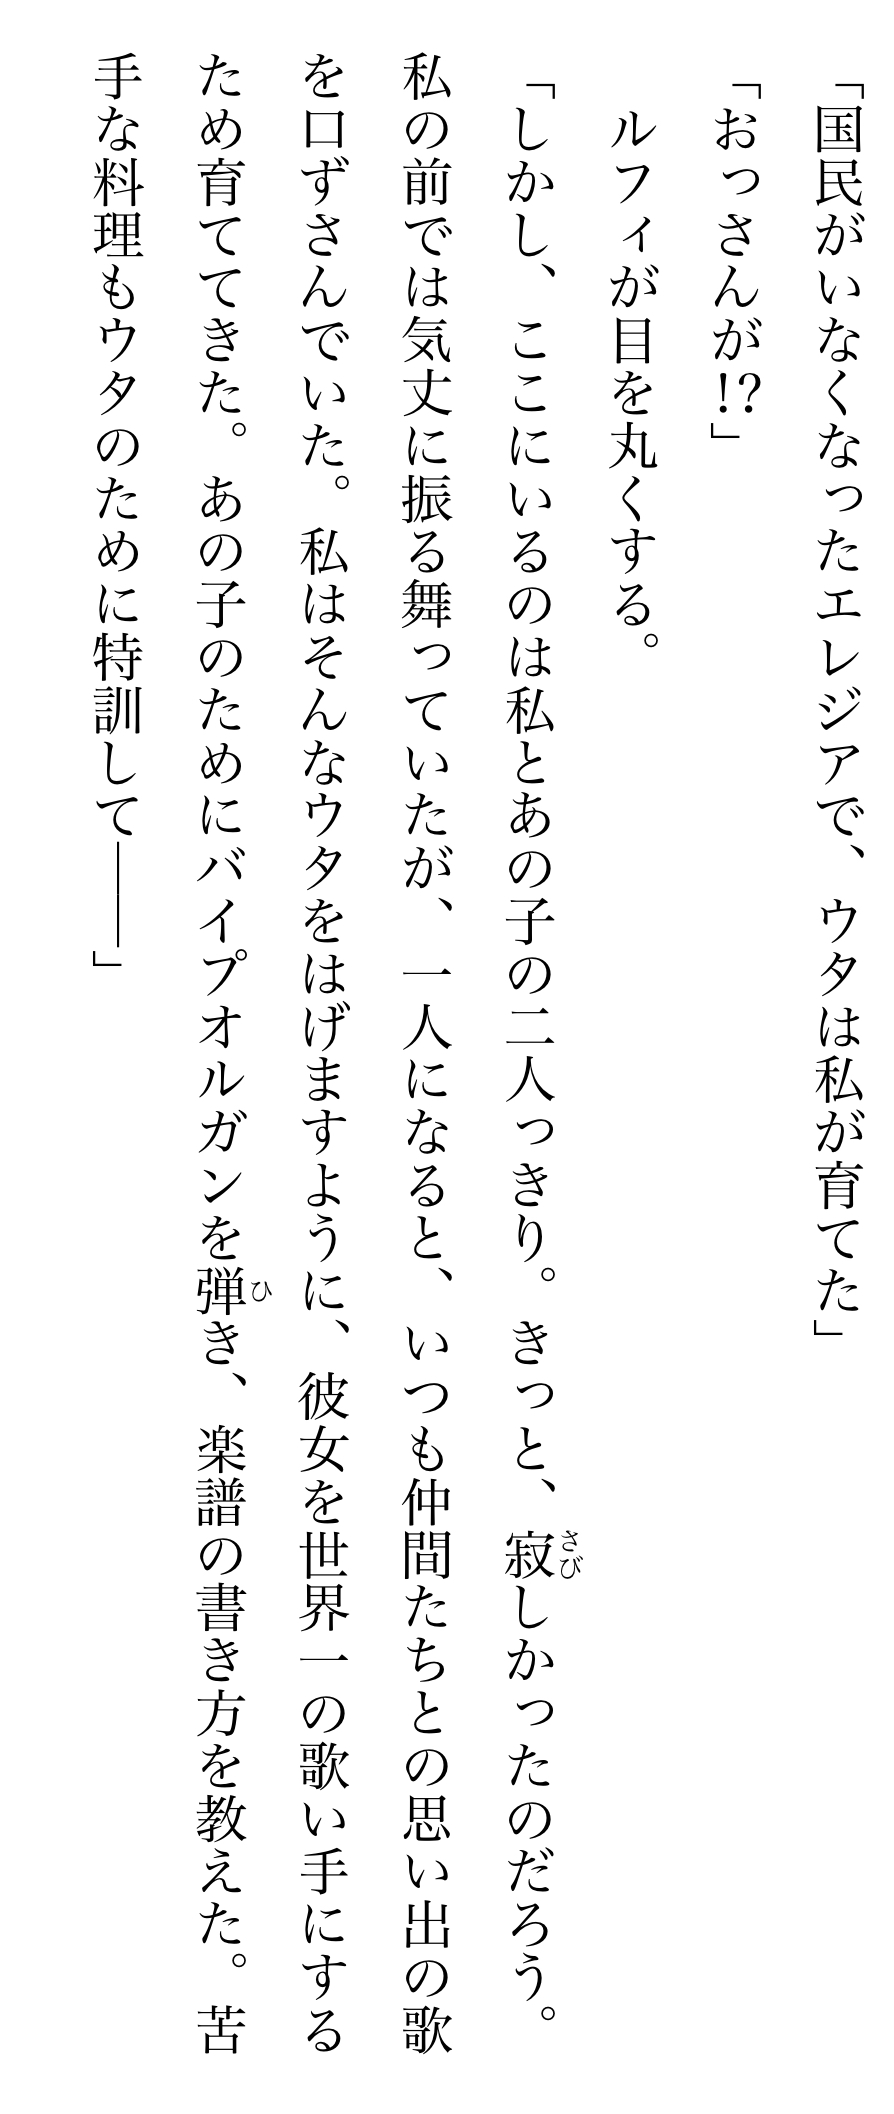 「国民がいなくなったエレジアで、ウタは私が育てた」
「おっさんが!?」
　ルフィが目を丸くする。
「しかし、ここにいるのは私とあの子の二人っきり。きっと、寂しかったのだろう。
私の前では気丈に振る舞っていたが、一人になると、いつも仲間たちとの思い出の歌
を口ずさんでいた。私はそんなウタをはげますように、彼女を世界一の歌い手にする
ため育ててきた。あの子のためにバイプオルガンを弾き、楽譜の書き方を教えた。苦
手な料理もウタのために特訓して――」